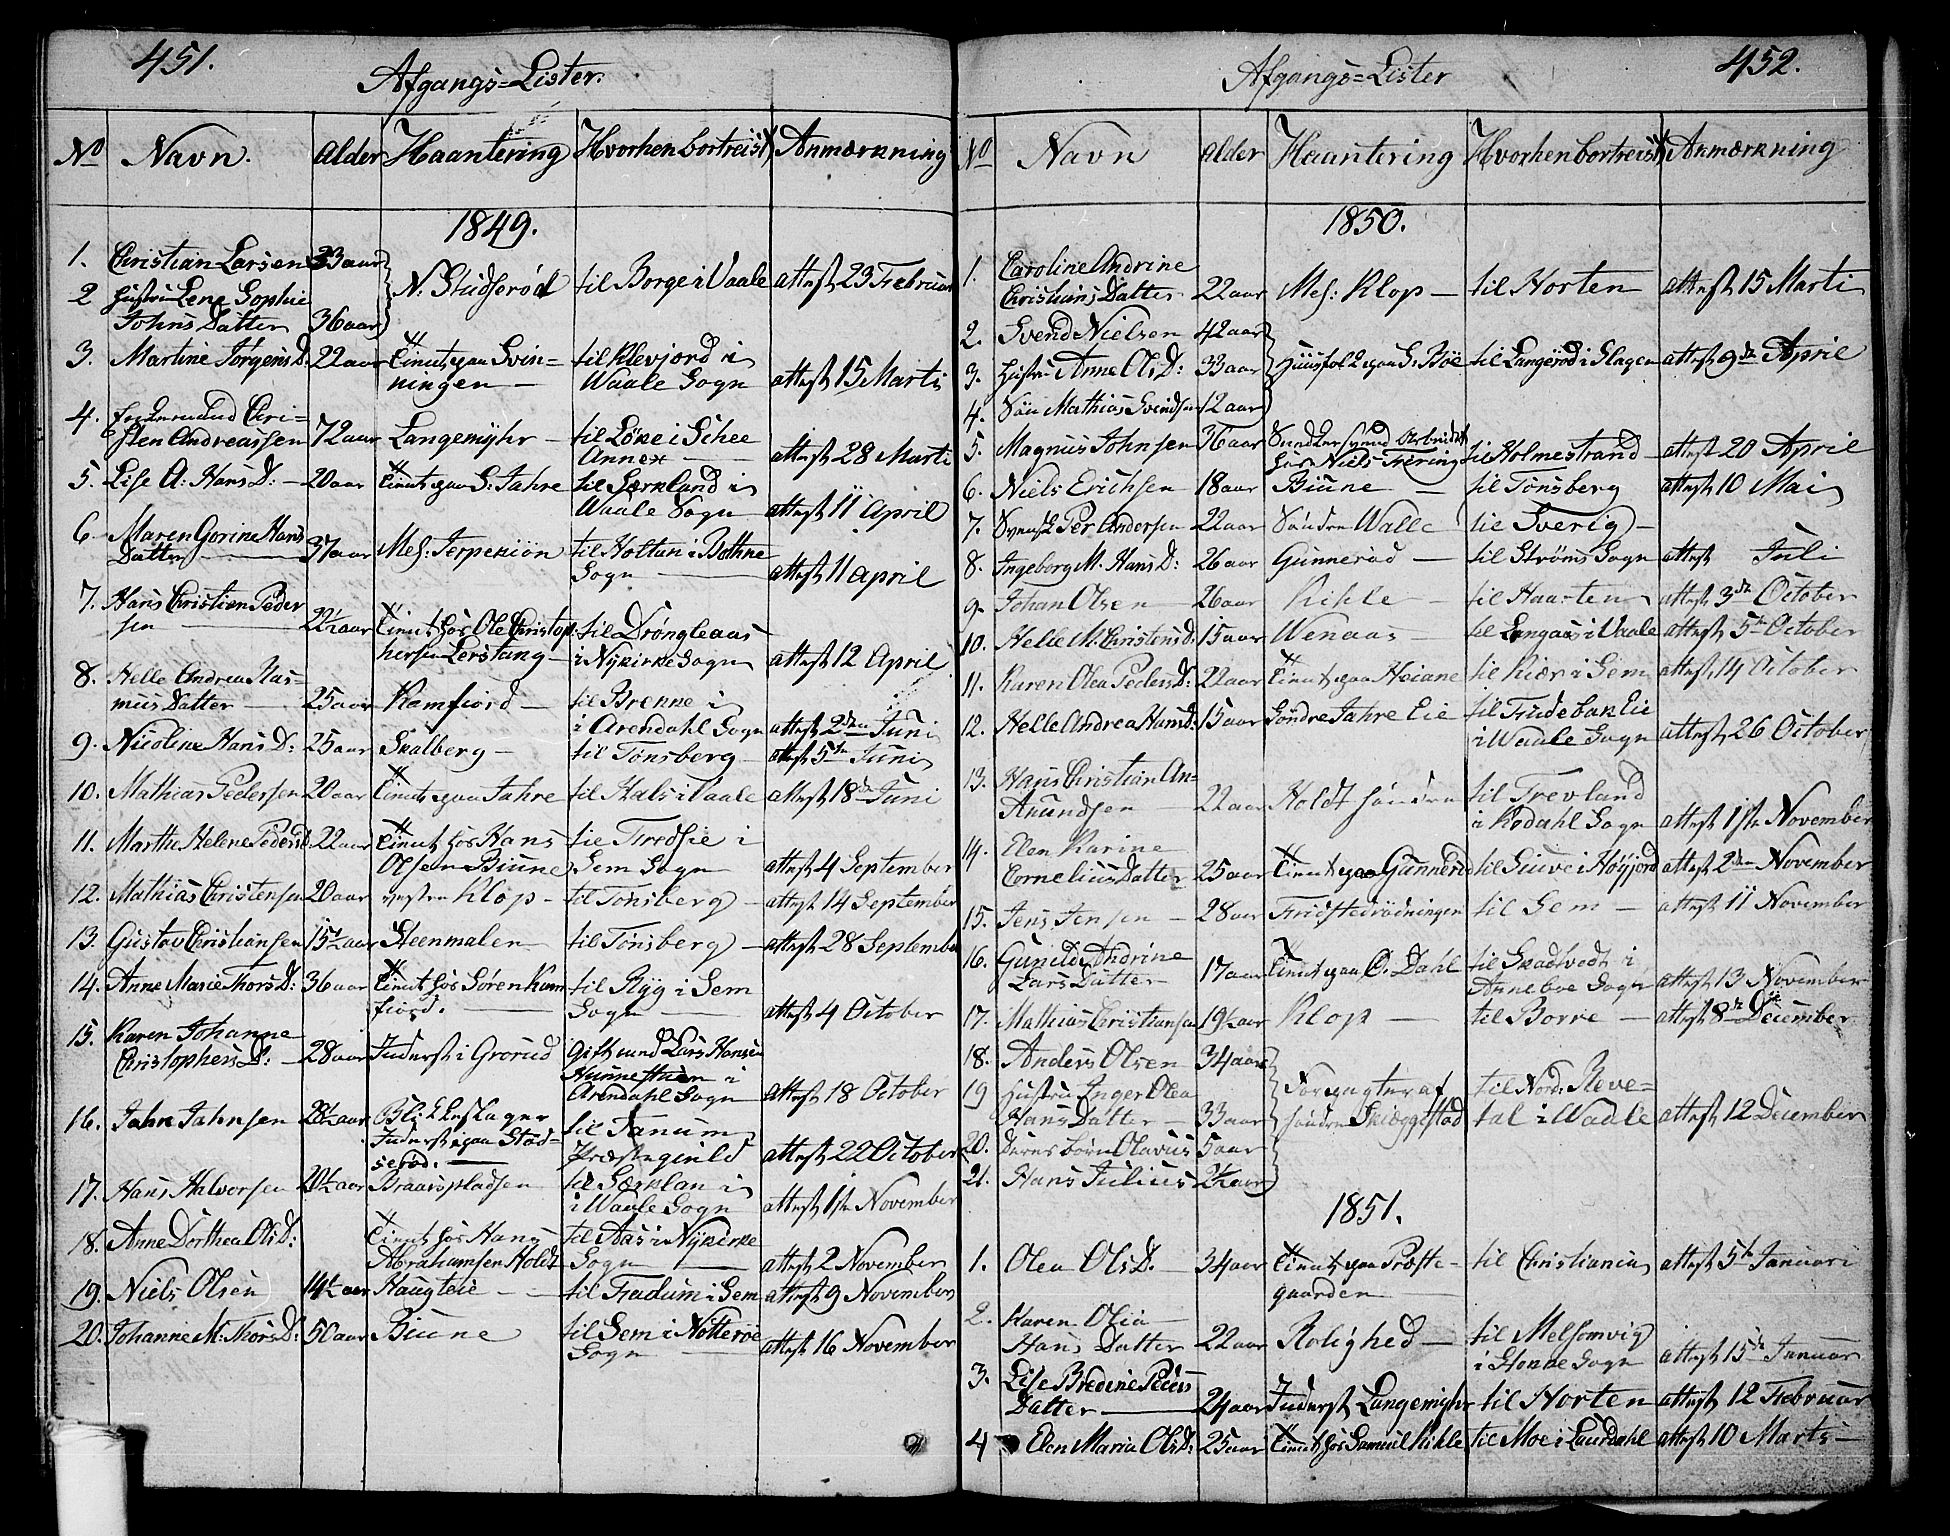 451.
Afgangs=Lister.
No Navn. Alder Haantering Hvorhen bortreist Anmærkning
1849.
1. Christian Larsen 33 aar
N: Studserød til Borge i Vaale attest 23 Februar
2 Hustru Lene Sophie
Johns Datter 36 aar
3. Martine Jørgens D. 22 aar Tient paa Svin= til Klevjord i
ningen — Waale Sogn attest 15 Marti
4. Chri=
sten Andreassen 72 aar Langemyhr — til Løke i Schee
Annex — attest 28 Marti
5. Lise A: Hans D: — 20 aar Tient paa S: Jahre til Særkland i
Waale Sogn attest 11 April
6 Maren Gorine Hans
Datter — 37 aar Mel: Jerpekiön til Holtan i Bothne
Sogn — attest 11 April
7. Hans Christien Peder
sen — 22½ aar Tient hos Ole Christop til Drøngleaas
hersen Lerstang — i Nykirke Sogn attest 12 April
8. Helle Andrea Ras=
mus Datter — 25 aar Ramfiord — til Brenne i
i Arendahl Sogn attest 2den Juni
9. Nicoline Hans D: 25 aar Skalberg — til Tønsberg attest 5te Juni
10. Mathias Pedersen 20 aar Tient paa Jahre til Hals i Vaale attest 18de Juni
11. Marthe Helene Peders D. 22 aar Tient hos Hans til Frodsie i
Olsen Biune Sem Sogn attest 4 September
12. Mathias Christensen 20 aar vestre Klop — til Tønsberg — attest 14 September
13. Gustav Christiansen 15½ aar Steenmalen til Tønsberg — attest 28 September
14. Anne Marie Thors D: 36 aar Tient hos Søren Ram til Ryg i Sem
fiord. — Sogn — attest 4 October
15. Karen Johanne
Christophers D: — 28 aar Inderst i Grorud Gift med Lars Hansen
Hunnestuen i
Arendahl Sogn attest 18 October
16. John Johnsen 28½ aar Blikkeslager
Inderst paa Stad= til Tanum
serød. — Præstegield attest 22 October
17. Hans Halvorsen 20½ aar Braarspladsen til Særklan i
i Waale Sogn attest 1ste November
18. Anne Dorthea Ols D: Tient hos Hans til Aas i Nykirke
Abrahamsen Holdt Sogn — attest 2 November
19. Niels Olsen 14½ aar Haugteie — til Fredum i Sem attest 9 November
20. Johanne M: Thors D: 50 aar Biune til Sem i Nøtterøe
Sogn — attest 16 November
452.
Afgangs=Lister
No Navn Alder Haantering Hvorhen bortreist Anmærkning
1850.
1. Caroline Andrine
Christians Datter 22 aar Mel: Klop — til Horten attest 15 Marti
2. Svend Nielsen 42 aar
3. Hustru Anne Ols D: 33 aar Huusfolk paa S: Bøe til Langerød i Slagen attest 9de April
4. Søn Mathias Svendsen 12 aar
5. Magnus Johnsen 36 aar
hos Niels Freiring til Holmestrand — attest 20 April
6. Niels Erichsen 18 aar Biune — til Tønsberg attest 10 Mai
7. Svensk Per Andersen 22 aar Søndre Walle til Sverig —
8. Ingeborg M. Hans D: 26 aar Gunnerød — til Strøms Sogn attest Juli
9. Johan Olsen — 26 aar Kihle — til Haarten attest 3de October
10. Helle M. Christens D. 15 aar Wenaas — til Langaas i Vaale attest 5te October
11. Karen Olea Peders D: 22 aar Tient paa Heiane til Kiær i Sem attest 14 October
12. Helle Andrea Hans D: 15 aar Søndre Jahre Eie til Frudebak Eie
i Waale Sogn attest 26 October
13. Hans Christian An=
Amundsen — 22 aar Holdt søndre til Trevland
i Rodahl Sogn attest 1ste November
14. Elen Karine
Cornelius Datter 25 aar Tient paa Gunnerød til Siuve i Høyjord attest 2den November
15. Jens Jensen — 28 aar Fredstedrødningen til Sem — attest 11 November
16. Gunild Andrine
Lars Datter — 17 aar Tient paa Ø: Dahl til Skadvedt i
Anneboe Sogn attest 13 November
17. Mathias Christiansen 19½ aar Klop — til Borre — attest 8de December
18. Anders Olsen 34 aar
19 Hustru Inger Olea
Hans Datter — 33 aar Forpagter af
søndre Skieggestad til Nord: Reve=
tal i Waale attest 12 December
20. Deres Børn Olavus 5 aar
21. Hans Julius 2½ aar
1851.
1. Olea Ols D. — 34 aar Tient paa Præste=
gaarden — til Christiania attest 5te Januari
2. Karen Olia
Hans Datter 22 aar Rolighed — til Melsomvig
i Stokke Sogn attest 15de Januar
3. Lise Bredine Peders
Datter — 24 aar Inderst Langemyhr til Horten attest 12 Februar
4 Elen Maria Ols D: 25 aar Tient hos Samuel Kihle til Moe i Laurdahl attest 10 Marts —